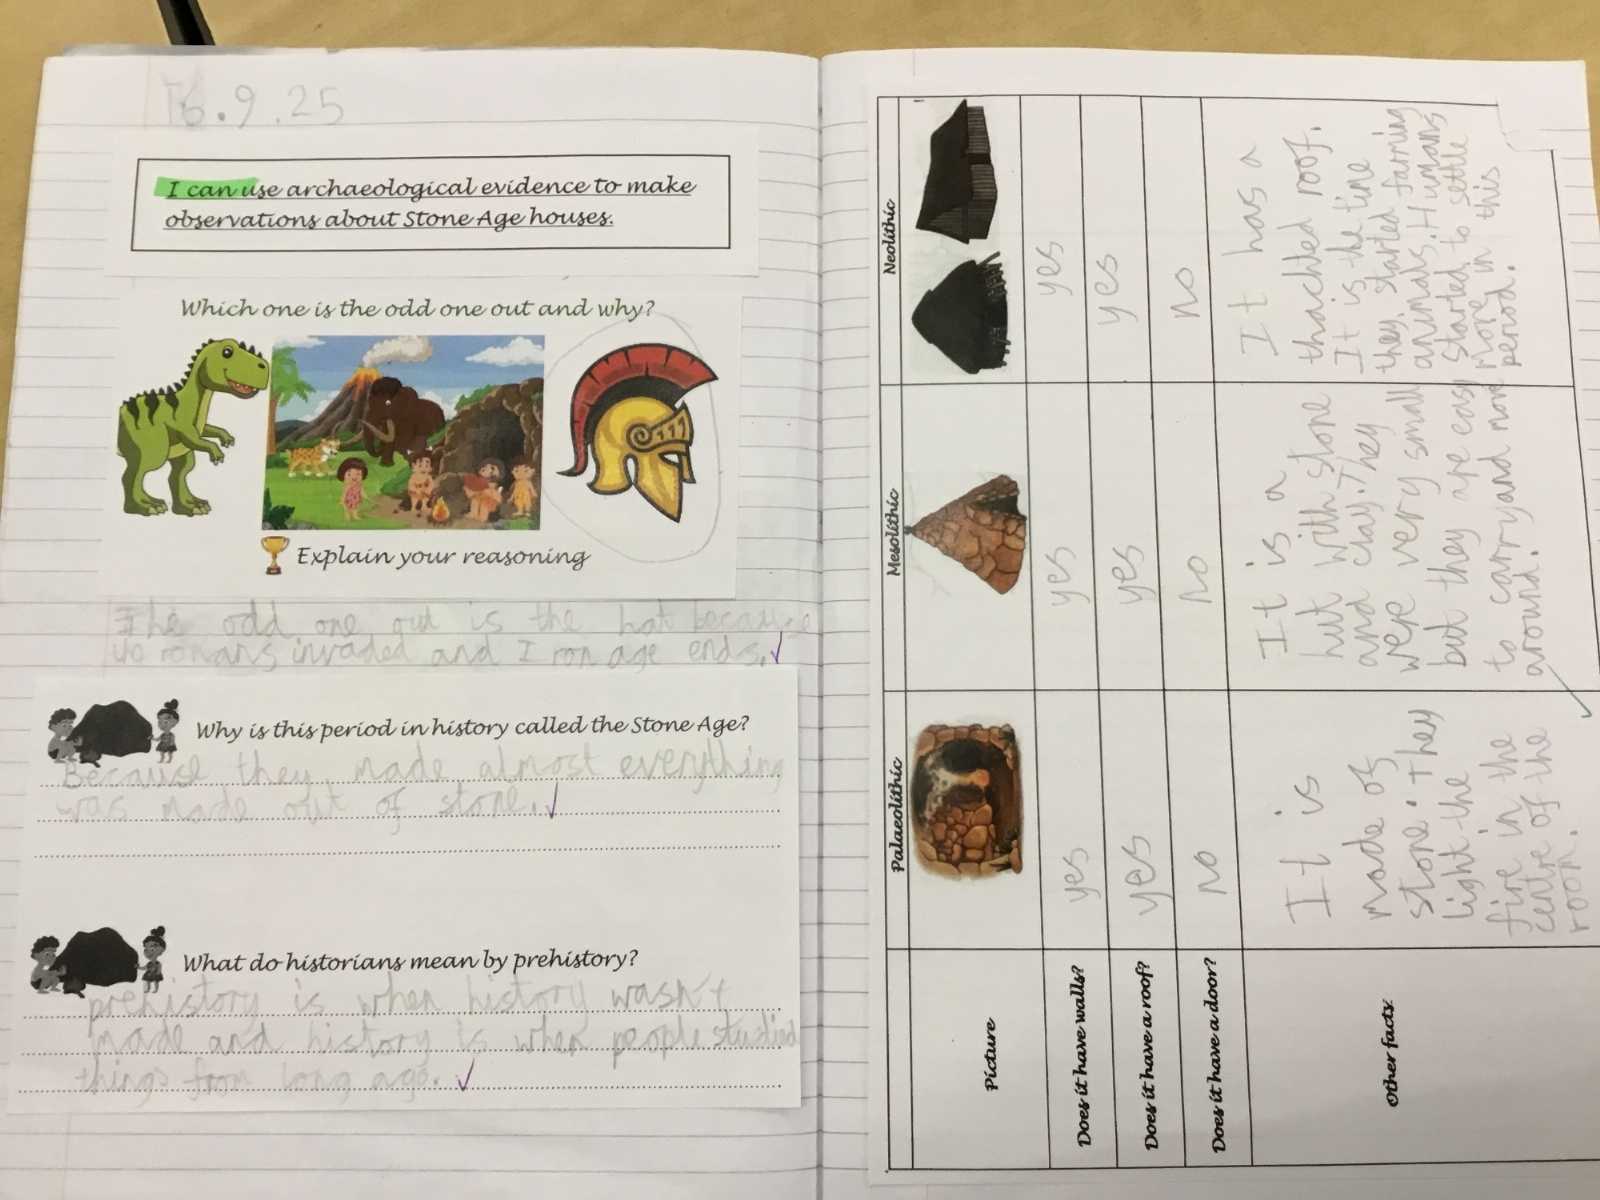 16.9.25
I can use archaeological evidence to make
observations about Stone Age houses.
Which one is the odd one out and why?
Explain your reasoning
The odd one out is the hat because
the romans invaded and Iron age ends.
Why is this period in history called the Stone Age?
Because they made almost everything
was made out of stone.
What do historians mean by prehistory?
prehistory is when history wasn't
made and history is when people studied
things from long ago.
Palaeolithic
Mesolithic
Neolithic
Picture
Does it have walls?
yes
yes
yes
Does it have a roof?
yes
yes
yes
Does it have a door?
no
no
no
Other facts
It is
made of
stone. They
light the
fire in the
centre of the
room.
It is a
hut with stone
and clay. They
were very small
but they are easy
to carry and move
around.
It has a
thachted roof.
It is the time
they started farming
animals. Humans
started to settle
more in this
period.